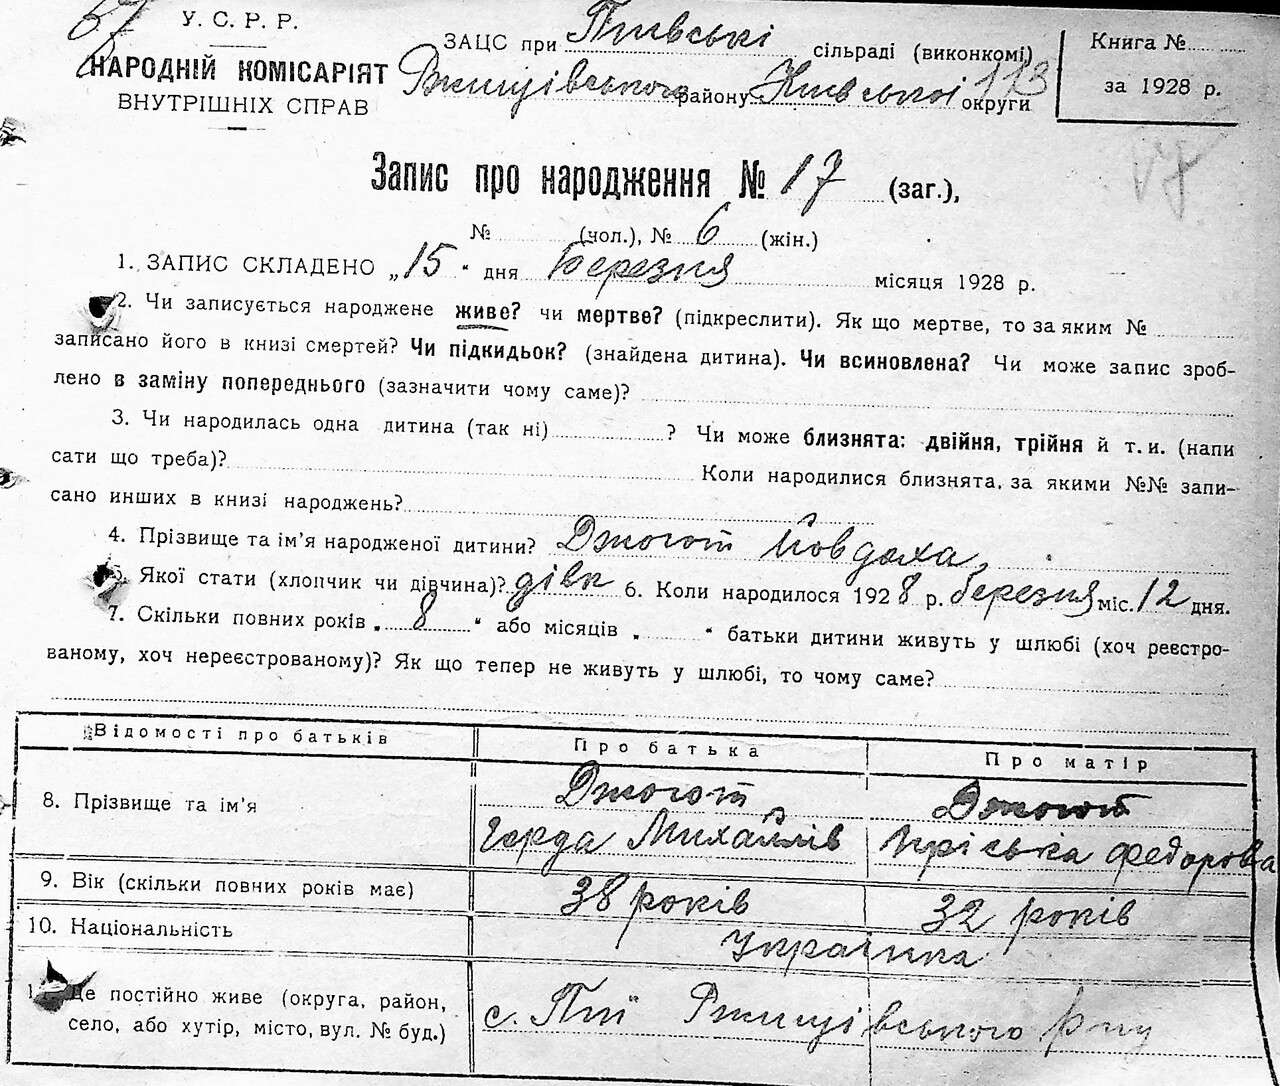 67
У. С. Р. Р.
НАРОДНІЙ КОМІСАРІЯТ
ВНУТРІШНІХ СПРАВ
ЗАЦС при Пиївські сільраді (виконкомі)
Ржищівського району Київської округи
113
Книга №
за 1928 р.
17
Запис про народження № 17 (заг.),
№ (чол.), № 6 (жін.)
1. ЗАПИС СКЛАДЕНО „15“ дня Березня місяця 1928 р.
2. Чи записується народжене живе? чи мертве? (підкреслити). Як що мертве, то за яким №
записано його в книзі смертей? Чи підкидьок? (знайдена дитина). Чи всиновлена? Чи може запис зроб-
лено в заміну попереднього (зазначити чому саме)?
3. Чи народилась одна дитина (так ні) ? Чи може близнята: двійня, трійня й т. и. (напи
сати що треба)? Коли народилися близнята, за якими №№ запи-
сано инших в книзі народжень?
4. Прізвище та ім'я народженої дитини? Джогот Йовдоха
5. Якої стати (хлопчик чи дівчина)? дівк 6. Коли народилося 1928 р. березня міс. 12 дня.
7. Скільки повних років „ 8 “ або місяців „ “ батьки дитини живуть у шлюбі (хоч реєстро-
ваному, хоч нереєстрованому)? Як що тепер не живуть у шлюбі, то чому саме?
Відомості про батьків Про батька Про матір
8. Прізвище та ім'я Джогот Джогот
Михайлів Пріська Федорова
9. Вік (скільки повних років має) 38 років 32 років
10. Національність Українка
Де постійно живе (округа, район,
село, або хутір, місто, вул. № буд.) с. Пії Ржищівського р-ну